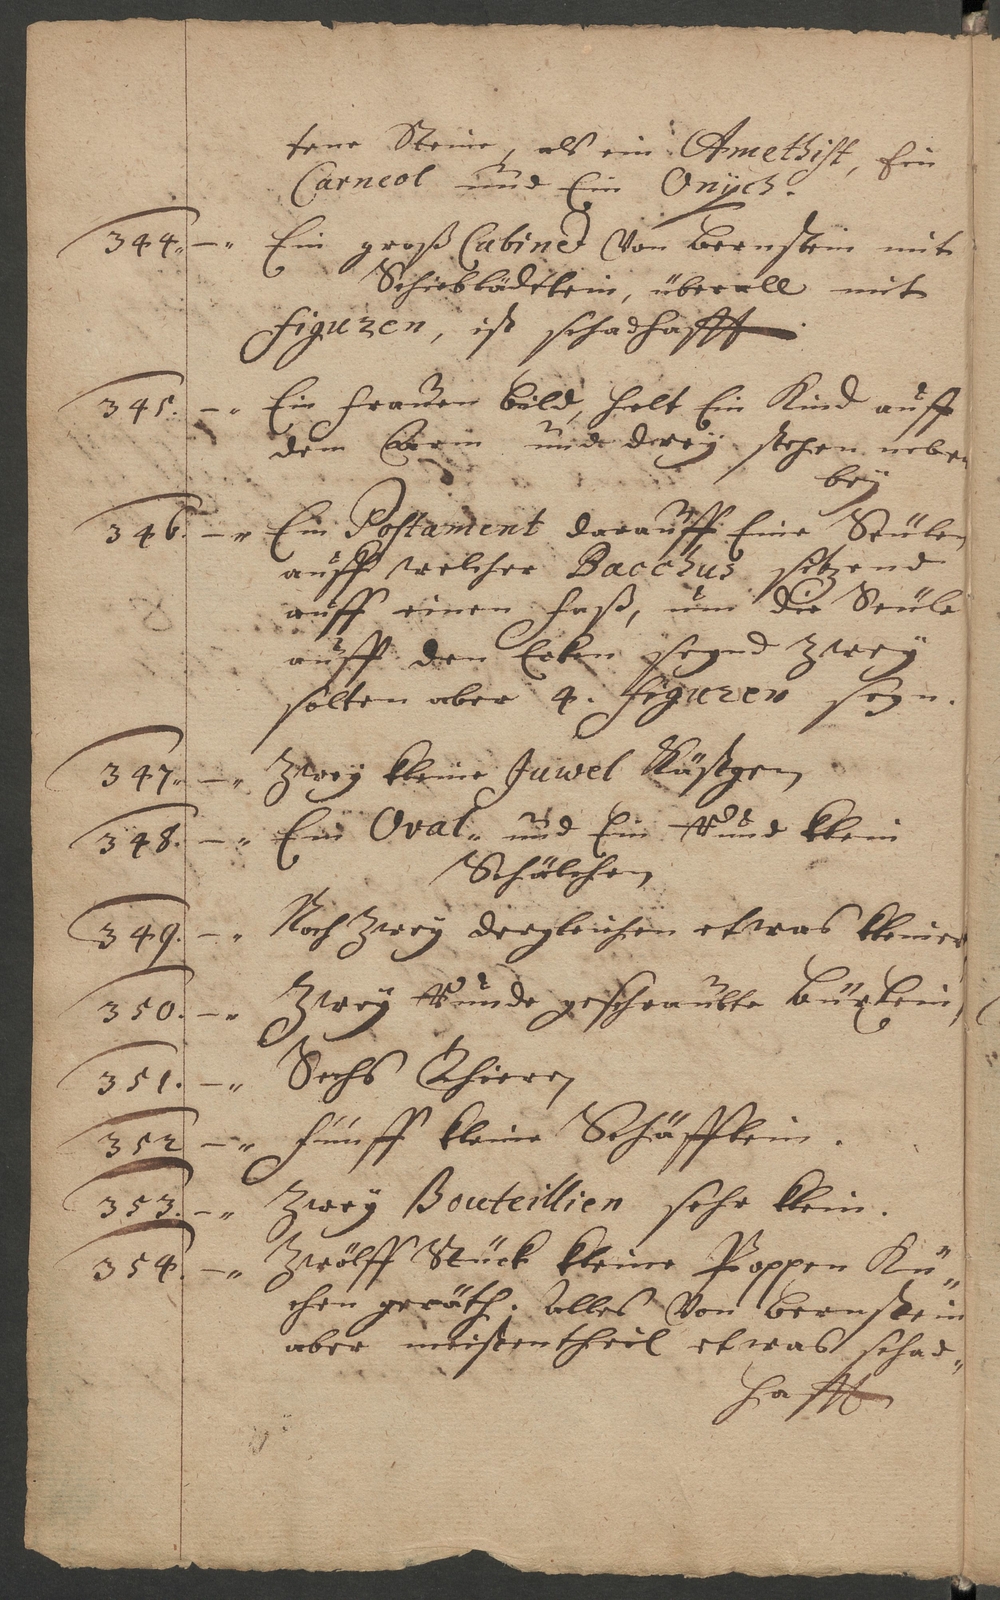 tene Steine, als ein Amethist, Ein
Carneol und Ein Onÿch.
344. — Ein groß Cabinet Von bernstein mit
Schieblädtlein, überall mit
figuren, ist schadhafft.
345. — Ein frauen bild, helt Ein Kind auff
dem Arm und dreÿ stehen neben
beÿ
346. — Ein Postament darauff Eine Seülen
auff welcher Bacchus sitzend
auff einen faß, um die Seüle
auff den Ecken seynd Zweÿ
solten aber 4. figuren seyn.
347. — Zweÿ kleine Juwel Kästgen
348. — Ein Oval- und Ein Rund klein
Schälchen
349. — Noch Zweÿ dergleichen etwas kleiner
350. — Zweÿ Runde geschraubte büxlein,
351. — Sechs Thieren
352 — fünff kleine Schäfflein.
353. — Zweÿ Bouteillien sehr klein.
354. — Zwölff Stück kleine Poppen Kü-
chen geräth. Alles Von bernstein
aber meistentheil etwas schad-
hafft